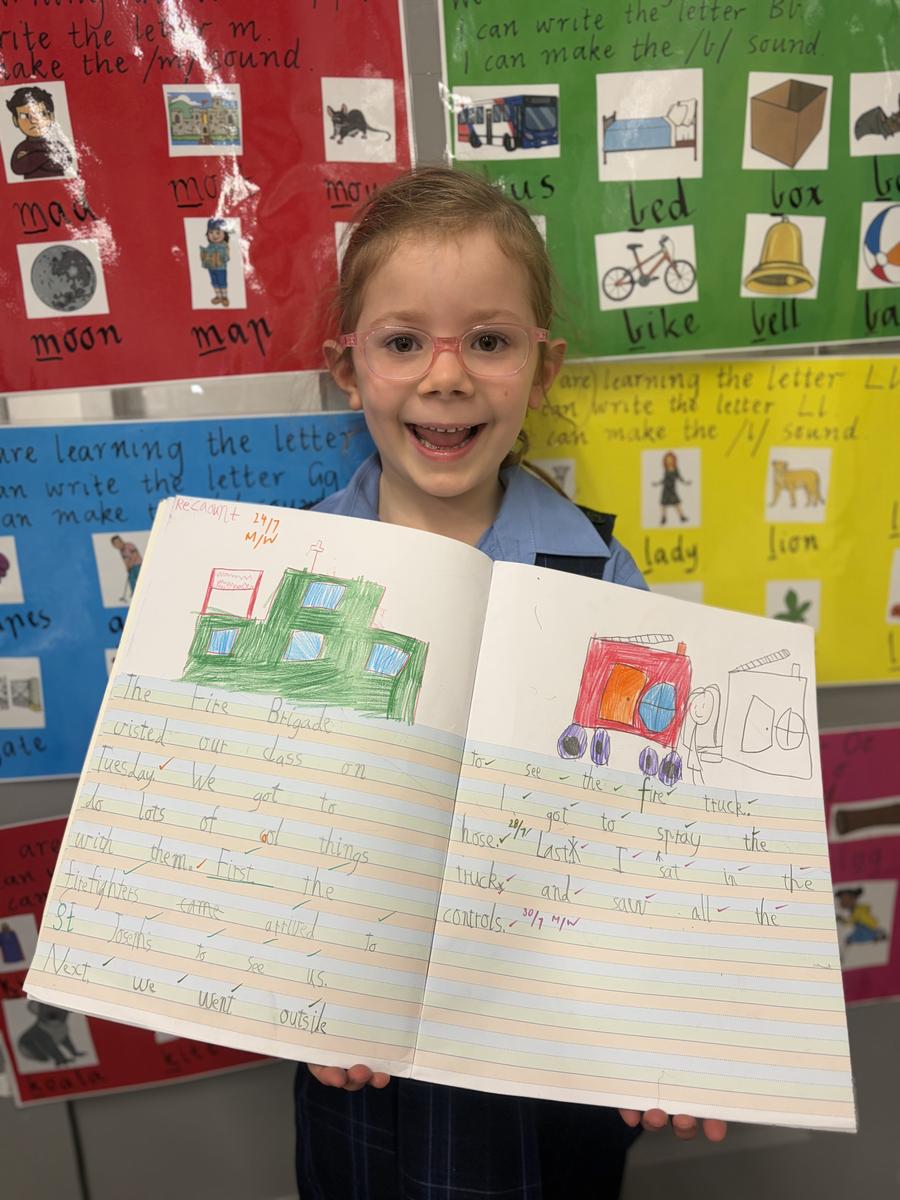 rite the letter m.
ake the /m/ sound.
mad
mo
mou
moon
map
I can write the letter Bb.
I can make the /b/ sound.
us
bed
box
ba
bike
bell
ba
are learning the letter
an write the letter Gg
an make
apes
gate
are learning the letter Ll
can write the letter Ll.
can make the /l/ sound.
lady
lion
koala
kite
Recount 24/7
M/W
The Fire Brigade
visted our class on
Tuesday. We got to
do lots of cool things
with them. First the
firefighters came arrived to
St Josephs to see us.
Next we went outside
to see the fire truck.
I got to spray the
hose. 28/7 Last I sat in the
truck and saw all the
controls. 30/7 M/W